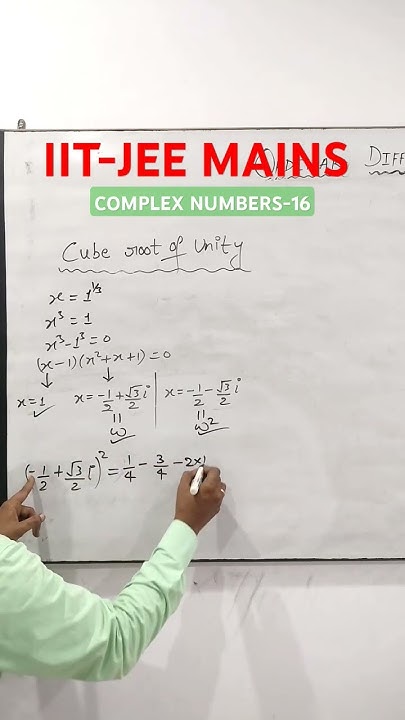 IIT-JEE MAINS
DIFF
COMPLEX NUMBERS-16
Cube root of Unity
x = 1^{1/3}
x³ = 1
x³ - 1³ = 0
(x-1)(x²+x+1) = 0
↓ ↓
x=1 ✓ x = -1/2 + √3/2 i | x = -1/2 - √3/2 i
= ω ✓ = ω² ✓
(-1/2 + √3/2 i)² = 1/4 - 3/4 - 2×1